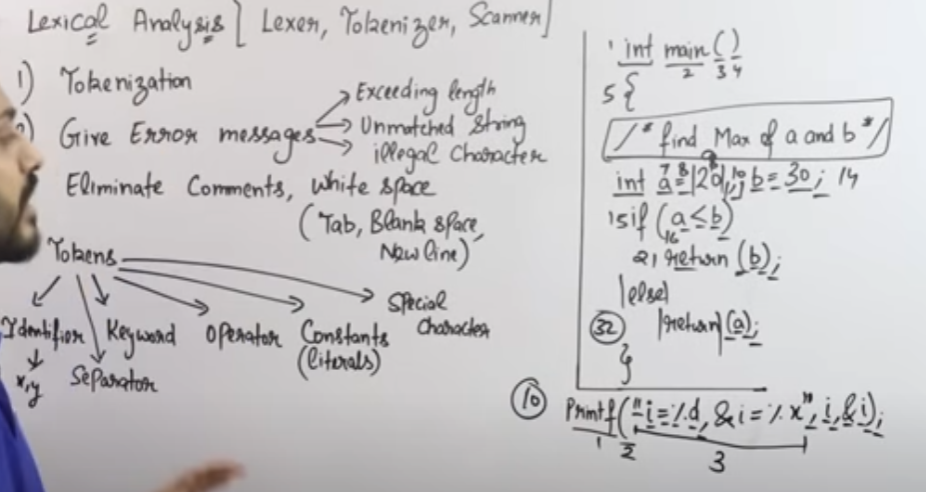 Lexical Analysis [Lexer, Tokenizer, Scanner]
1) Tokenization
2) Give Error messages
Exceeding length
Unmatched String
illegal Character
Eliminate Comments, White space
(Tab, Blank space,
New line)
Tokens
Identifier
x,y
Separator
Keyword
Operator
Constants
(literals)
Special
Character
1 int main ( )
2 3 4
5 {
/* find Max of a and b */
7 8 9 10
int a = 20, b = 30; 14
15 if (a ≤ b)
16
21 return (b);
else
32 return (a);
}
10 Printf("i=%d, &i=%x", i, &i);
1 2 3